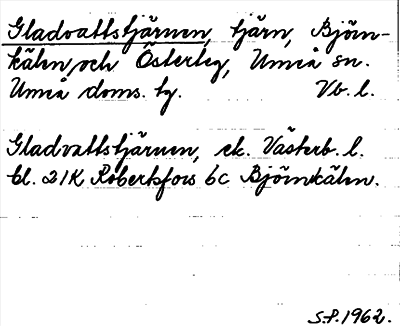 Gladvattstjärnen, tjärn, Björn-
kälen, och Österteg, Umeå sn.
Umeå doms. tg. Vb. l.
Gladvattstjärnen, ek. Västerb. l.
bl. 21K Robertsfors 6c Björnkälen.
S.P. 1962.